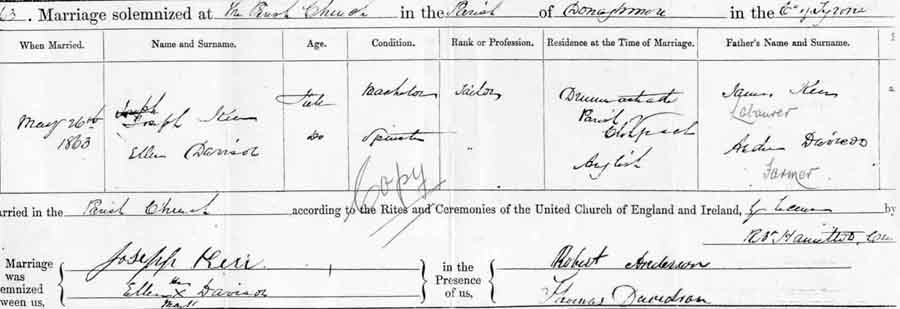 63. Marriage solemnized at the Parish Church in the Parish of Donaghmore in the Co of Tyrone
When Married. Name and Surname. Age. Condition. Rank or Profession. Residence at the Time of Marriage. Father's Name and Surname.
May 26th 1863 Joseph Joseph Kerr Full Bachelor Tailor Parish James Kerr Labourer
Ellen Davison Do Spinster " Davison Farmer
Copy
arried in the Parish Church according to the Rites and Ceremonies of the United Church of England and Ireland, by License by
Robt Hamilton,
Marriage was emnized ween us,
Joseph Kerr
Ellen her X Davison
mark
in the Presence of us,
Robert Anderson
Thomas Davidson